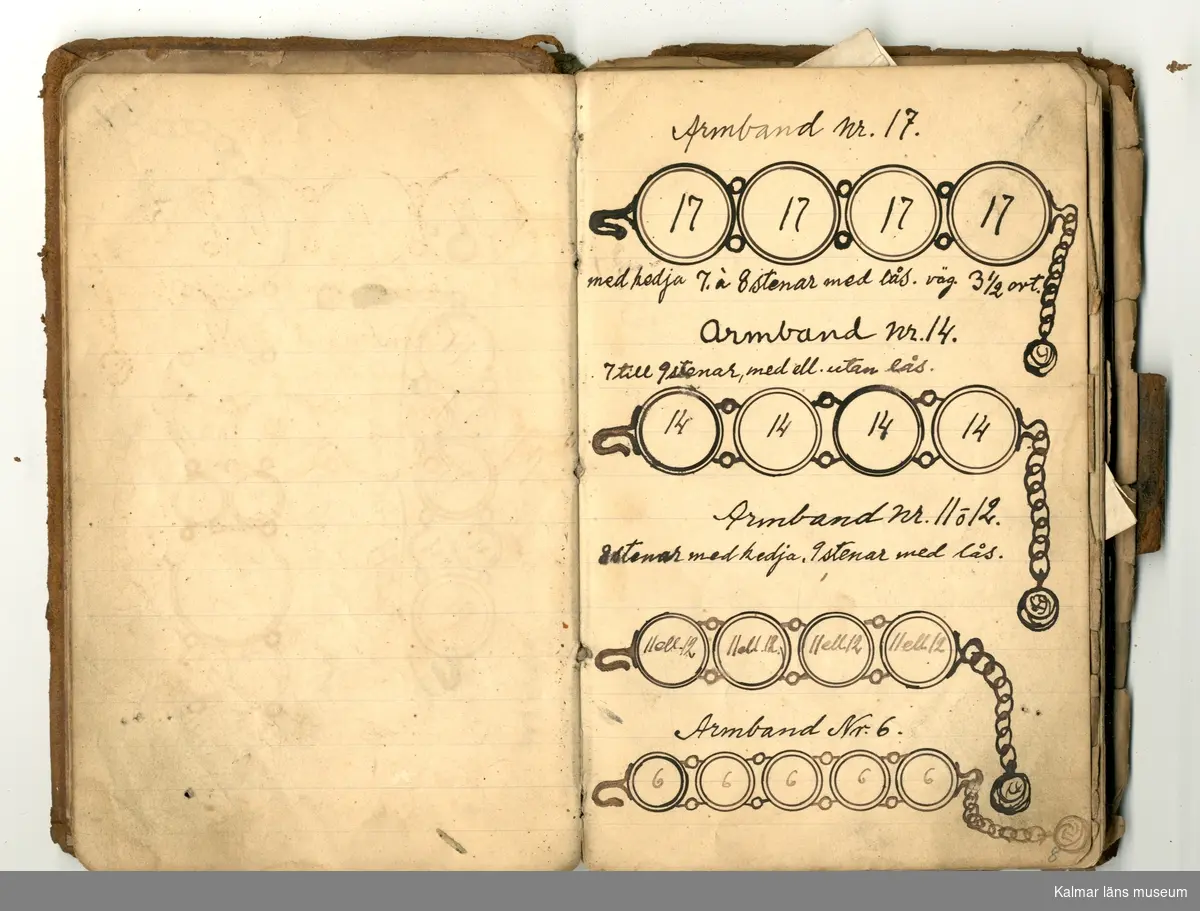 Armband nr. 17.
17 17 17 17
med kedja 7. à 8 stenar med lås. väg. 3 1/2 ort.
Armband nr. 14.
7 till 9 stenar, med ell. utan lås.
14 14 14 14
Armband nr. 11 o 12.
8 stenar med kedja. 9 stenar med lås.
11 ell. 12 11 ell. 12. 11 ell. 12 11 ell. 12
Armband Nr. 6.
6 6 6 6 6
Kalmar läns museum